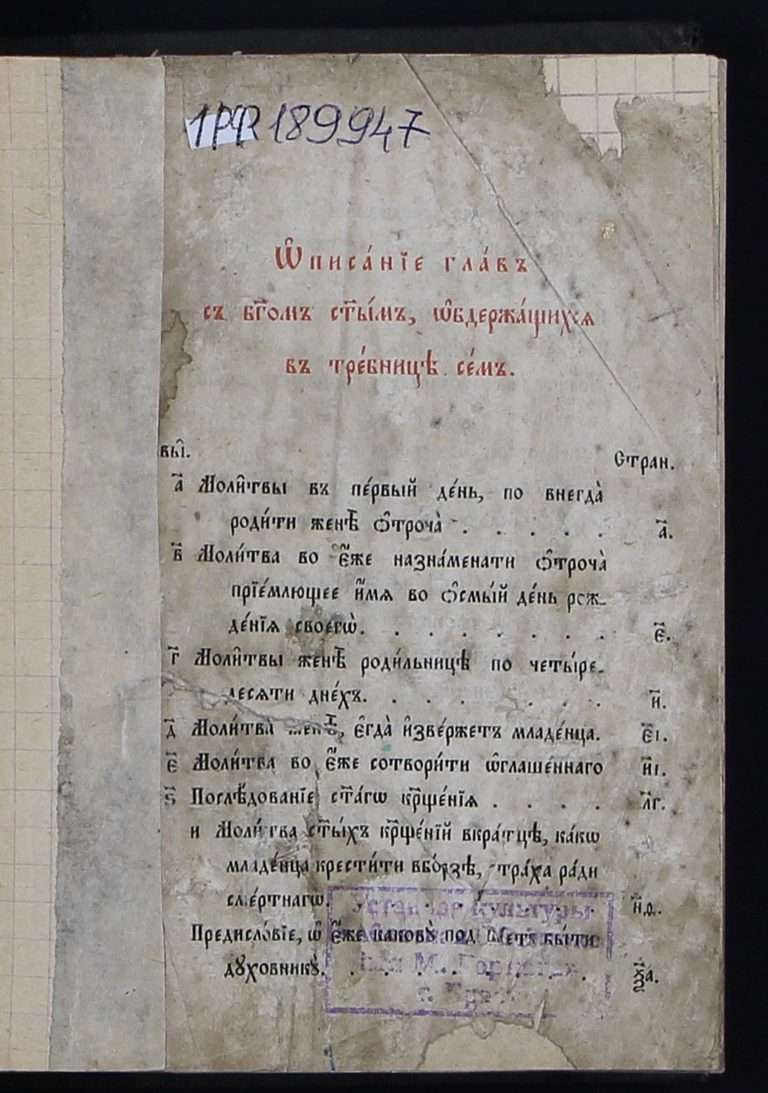 1РФ 189947
Ѡ҆писа́нїе гла́въ
съ бг҃омъ ст҃ы́мъ, ѡ҆бдержа́щихсѧ
въ тре́бницѣ се́мъ.
вы̑.
Стран.
а҃ Моли̑твы въ пе́рвый де́нь, по внегда̀
роди́ти женѣ̀ ѻ҆троча̀ . . . . . а҃.
в҃ Моли́тва во є҆́же назна́менати ѻ҆троча̀
прїе́млющее и҆́мѧ во ѻ҆смы́й де́нь рож-
де́нїѧ своегѡ̀. . . . . . . . є҃.
г҃ Моли̑твы женѣ̀ роди́льницѣ по четы́ре-
десѧти дне́хъ. . . . . . . и҃.
д҃ Моли́тва женѣ̀, є҆гда̀ и҆зве́ржетъ младе́нца. є҃і.
є҃ Моли́тва во є҆́же сотвори́ти ѡ҆глаше́ннаго и҃і.
ѕ҃ Послѣ́дованїе ст҃а́гѡ кр҃ще́нїѧ . . . . л҃г.
и Моли́тва ст҃ы́хъ кр҃ще́нїй вкра́тцѣ, ка́кѡ
младе́нца крести́ти вбо́рзѣ, стра́ха ра́ди
сме́ртнагѡ.
Предисло́вїе, ѡ҆ є҆́же каковꙋ̀ подоба́етъ бы́ти
дꙋховникꙋ̀. . . . . . . ѯ҃а.
Культуры
им М. Горького